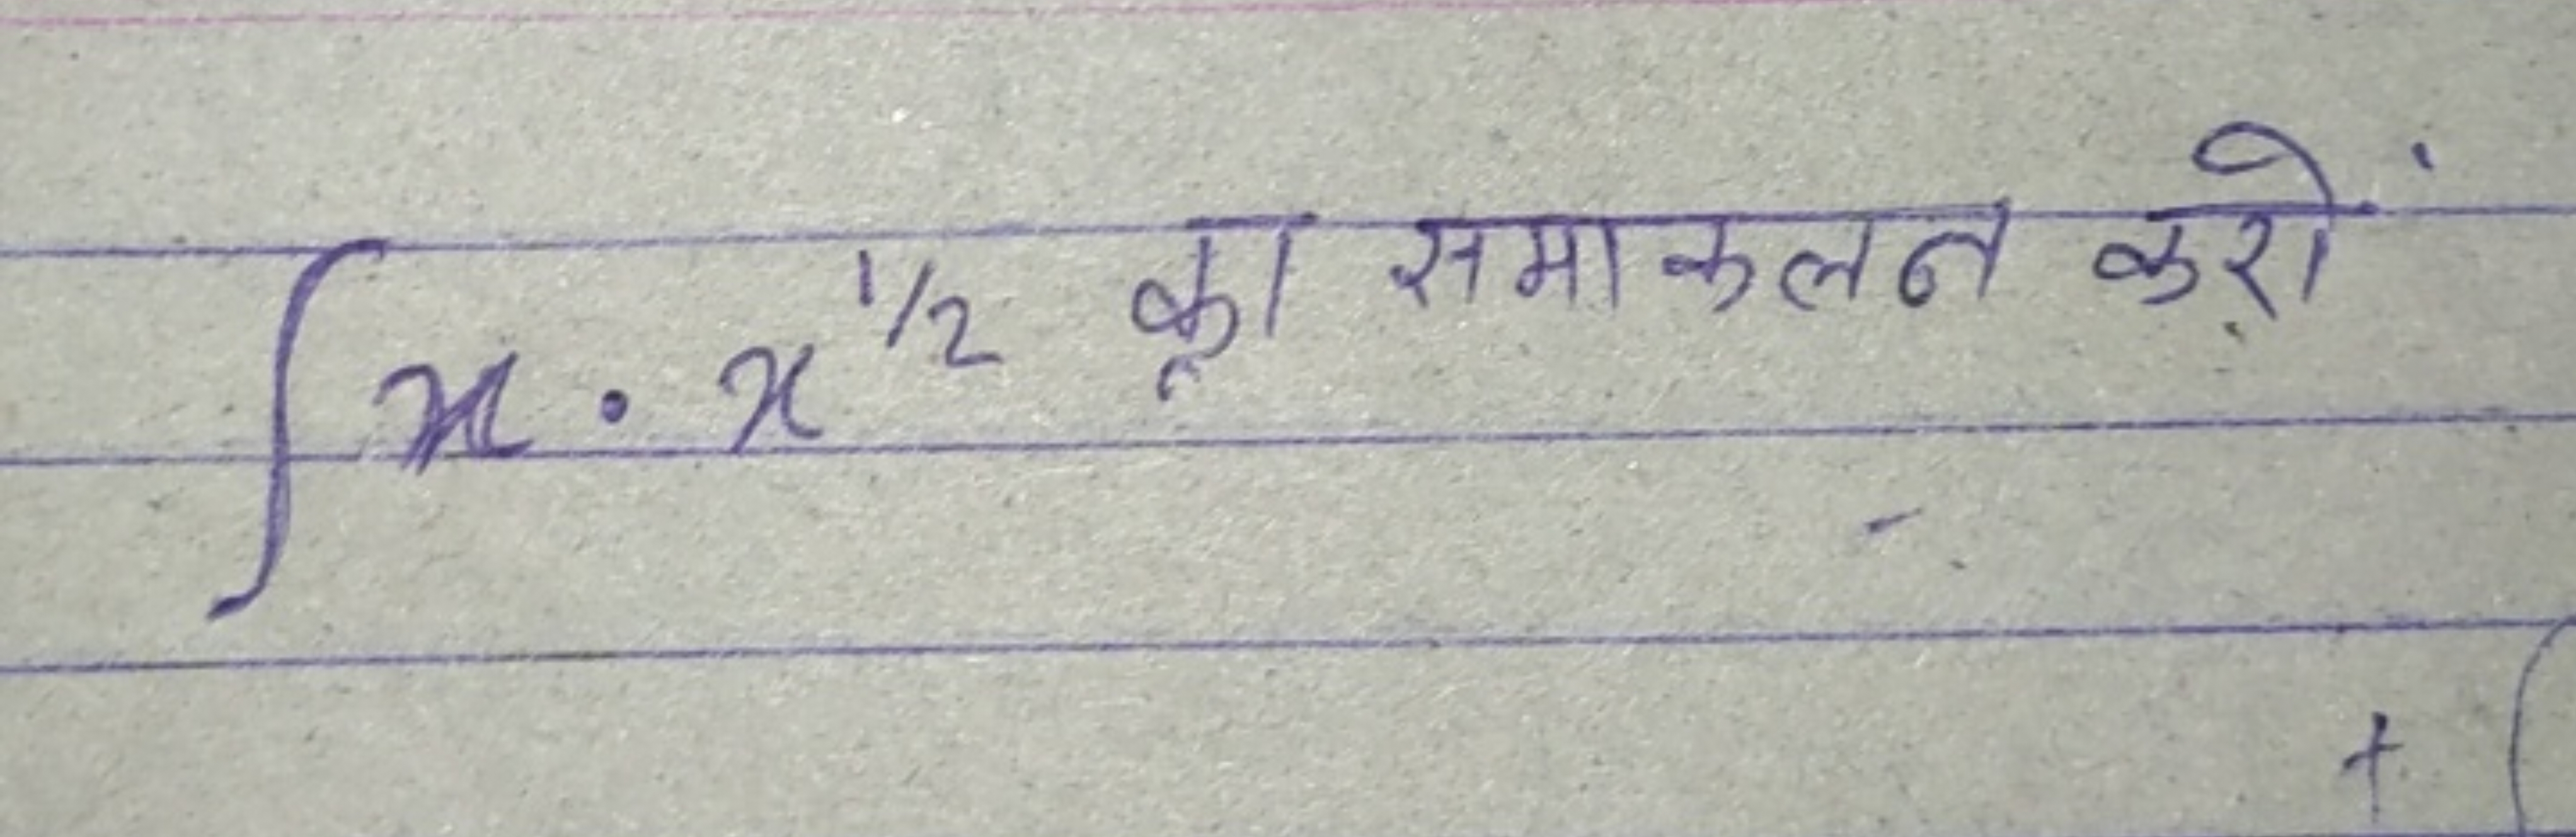 ∫ x · x^1/2 का समाकलन करो
+ (